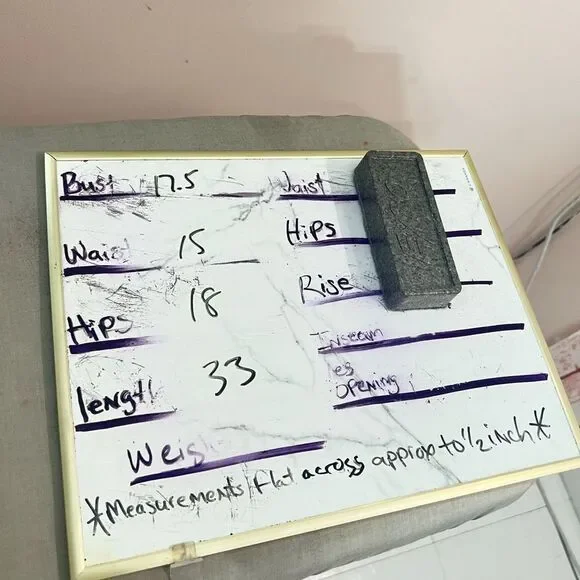 Bust 17.5
Waist 15
Hips 18
length 33
Waist
Hips
Rise
Inseam
opening
Weigh
*Measurements flat across approx to 1/2 inch*